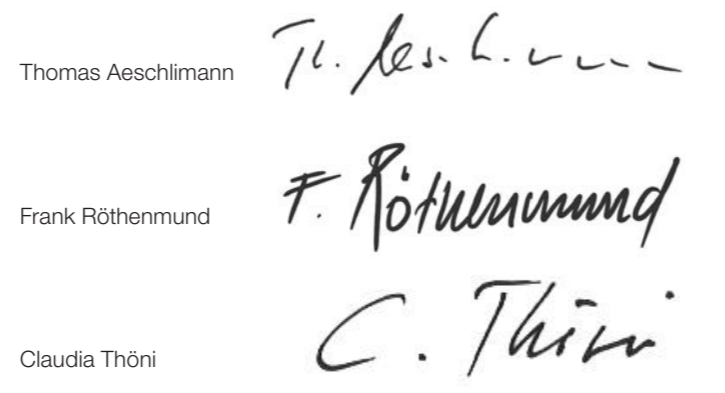 Thomas Aeschlimann Th. Aeschlimann
Frank Röthenmund F. Röthenmund
Claudia Thöni C. Thöni